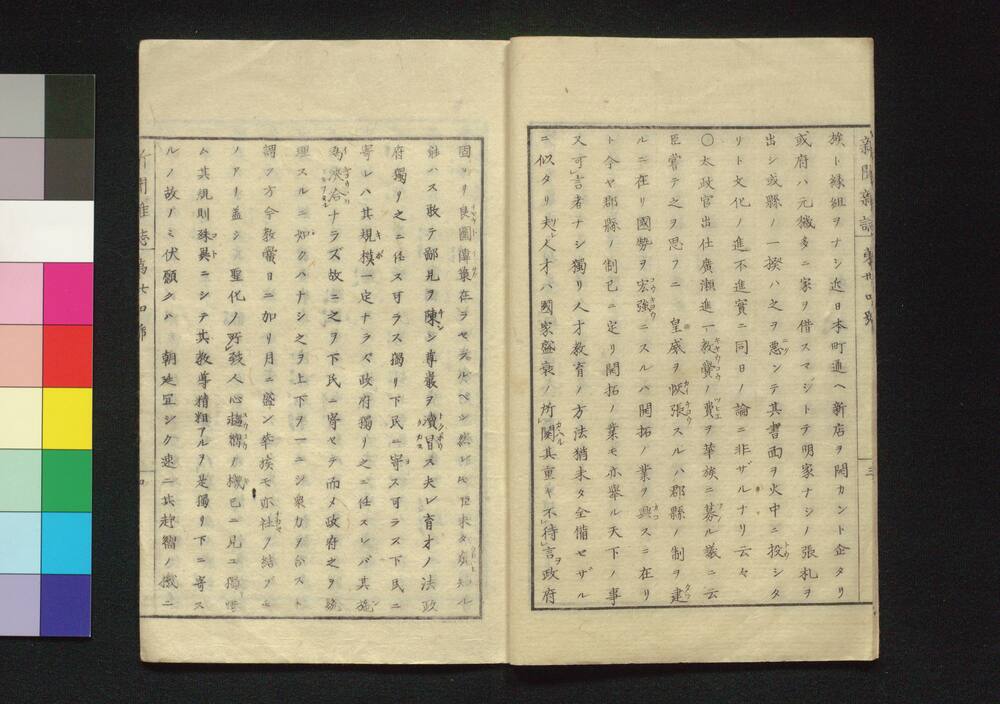 新聞雜誌
族ト緣組ヲナシ近日本町通ヘ新店ヲ開カント企タリ
或府ハ元穢多ニ家ヲ借スマジトテ明家ナシノ張札ヲ
出シ或縣ノ一揆ハ之ヲ惡ンテ其書面ヲ火中ニ投シタ
リト文化ノ進不進實ニ同日ノ論ニ非ザルナリ云々
〇太政官出仕廣瀬進一教黌ノ費ヲ華族ニ募ル議ニ云
臣嘗テ之ヲ思フニ 皇威ヲ恢張スルハ郡縣ノ制ヲ建
ルニ在リ國勢ヲ宏強ニスルハ開拓ノ業ヲ興スニ在リ
ト今ヤ郡縣ノ制已ニ定リ開拓ノ業モ亦舉ル天下ノ事
又可言者ナシ獨リ人才教育ノ方法猶未タ全備セザル
ニ似タリ夫人才ハ國家盛衰ノ所關其重キ不待言政府
固ヨリ良圖偉業在ラセラルベシ然レトモ臣未タ
能ハス敢テ鄙見ヲ陳シ尊嚴ヲ瀆冒ス夫レ育才ノ法政
府獨リ之ニ任ス可ラス獨リ下民ニ寄ス可ラス下民ニ
寄レハ其規模一定ナラズ政府獨リ之ニ任スレバ其施
為浹洽ナラズ故ニ之ヲ下民ニ寄セテ而メ政府之ヲ統
理スルニ如クハナシ之ヲ上下ヲ一ニシ衆力ヲ合スト
謂フ方今教黌日ニ加リ月ニ盛ン華族モ亦社ヲ結フニ
ノアリ盖シ 聖化ノ所致人心趨嚮ノ機已ニ見ユ獨惜
ム其規則殊異ニシテ其教專精粗アルヲ是獨リ下ニ寄ス
ルノ故ノミ伏願クハ 朝廷宜シク速ニ其趨嚮ノ機ニ
新聞雜誌 第廿四號